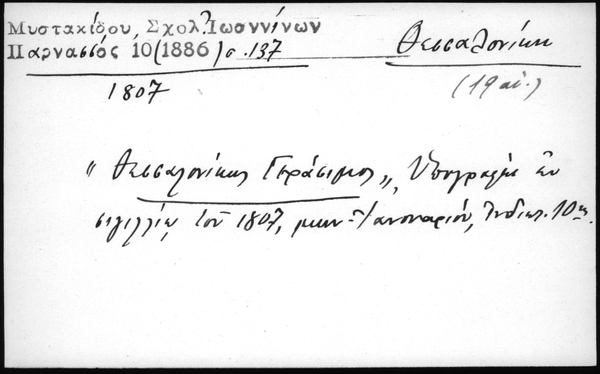 Μυστακίδου, Σχολ. Ἰωαννίνων
Παρνασσός 10(1886) σ. 137
Θεσσαλονίκη
1807
(19 αἰ.)
"Θεσσαλονίκης Γεράσιμος", Ὑπογραφὴ ἐν
σιγιλλίῳ τοῦ 1807, μην. Ἰανουαρίου, Ἰνδικτ. 10ης.